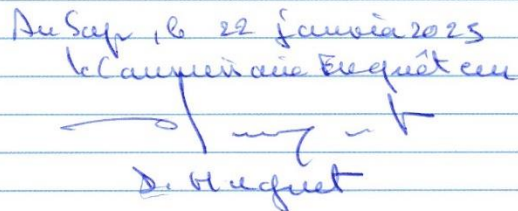 Au Sap, le 22 janvier 2025
le Commissaire Enquêteur
D. Huguet